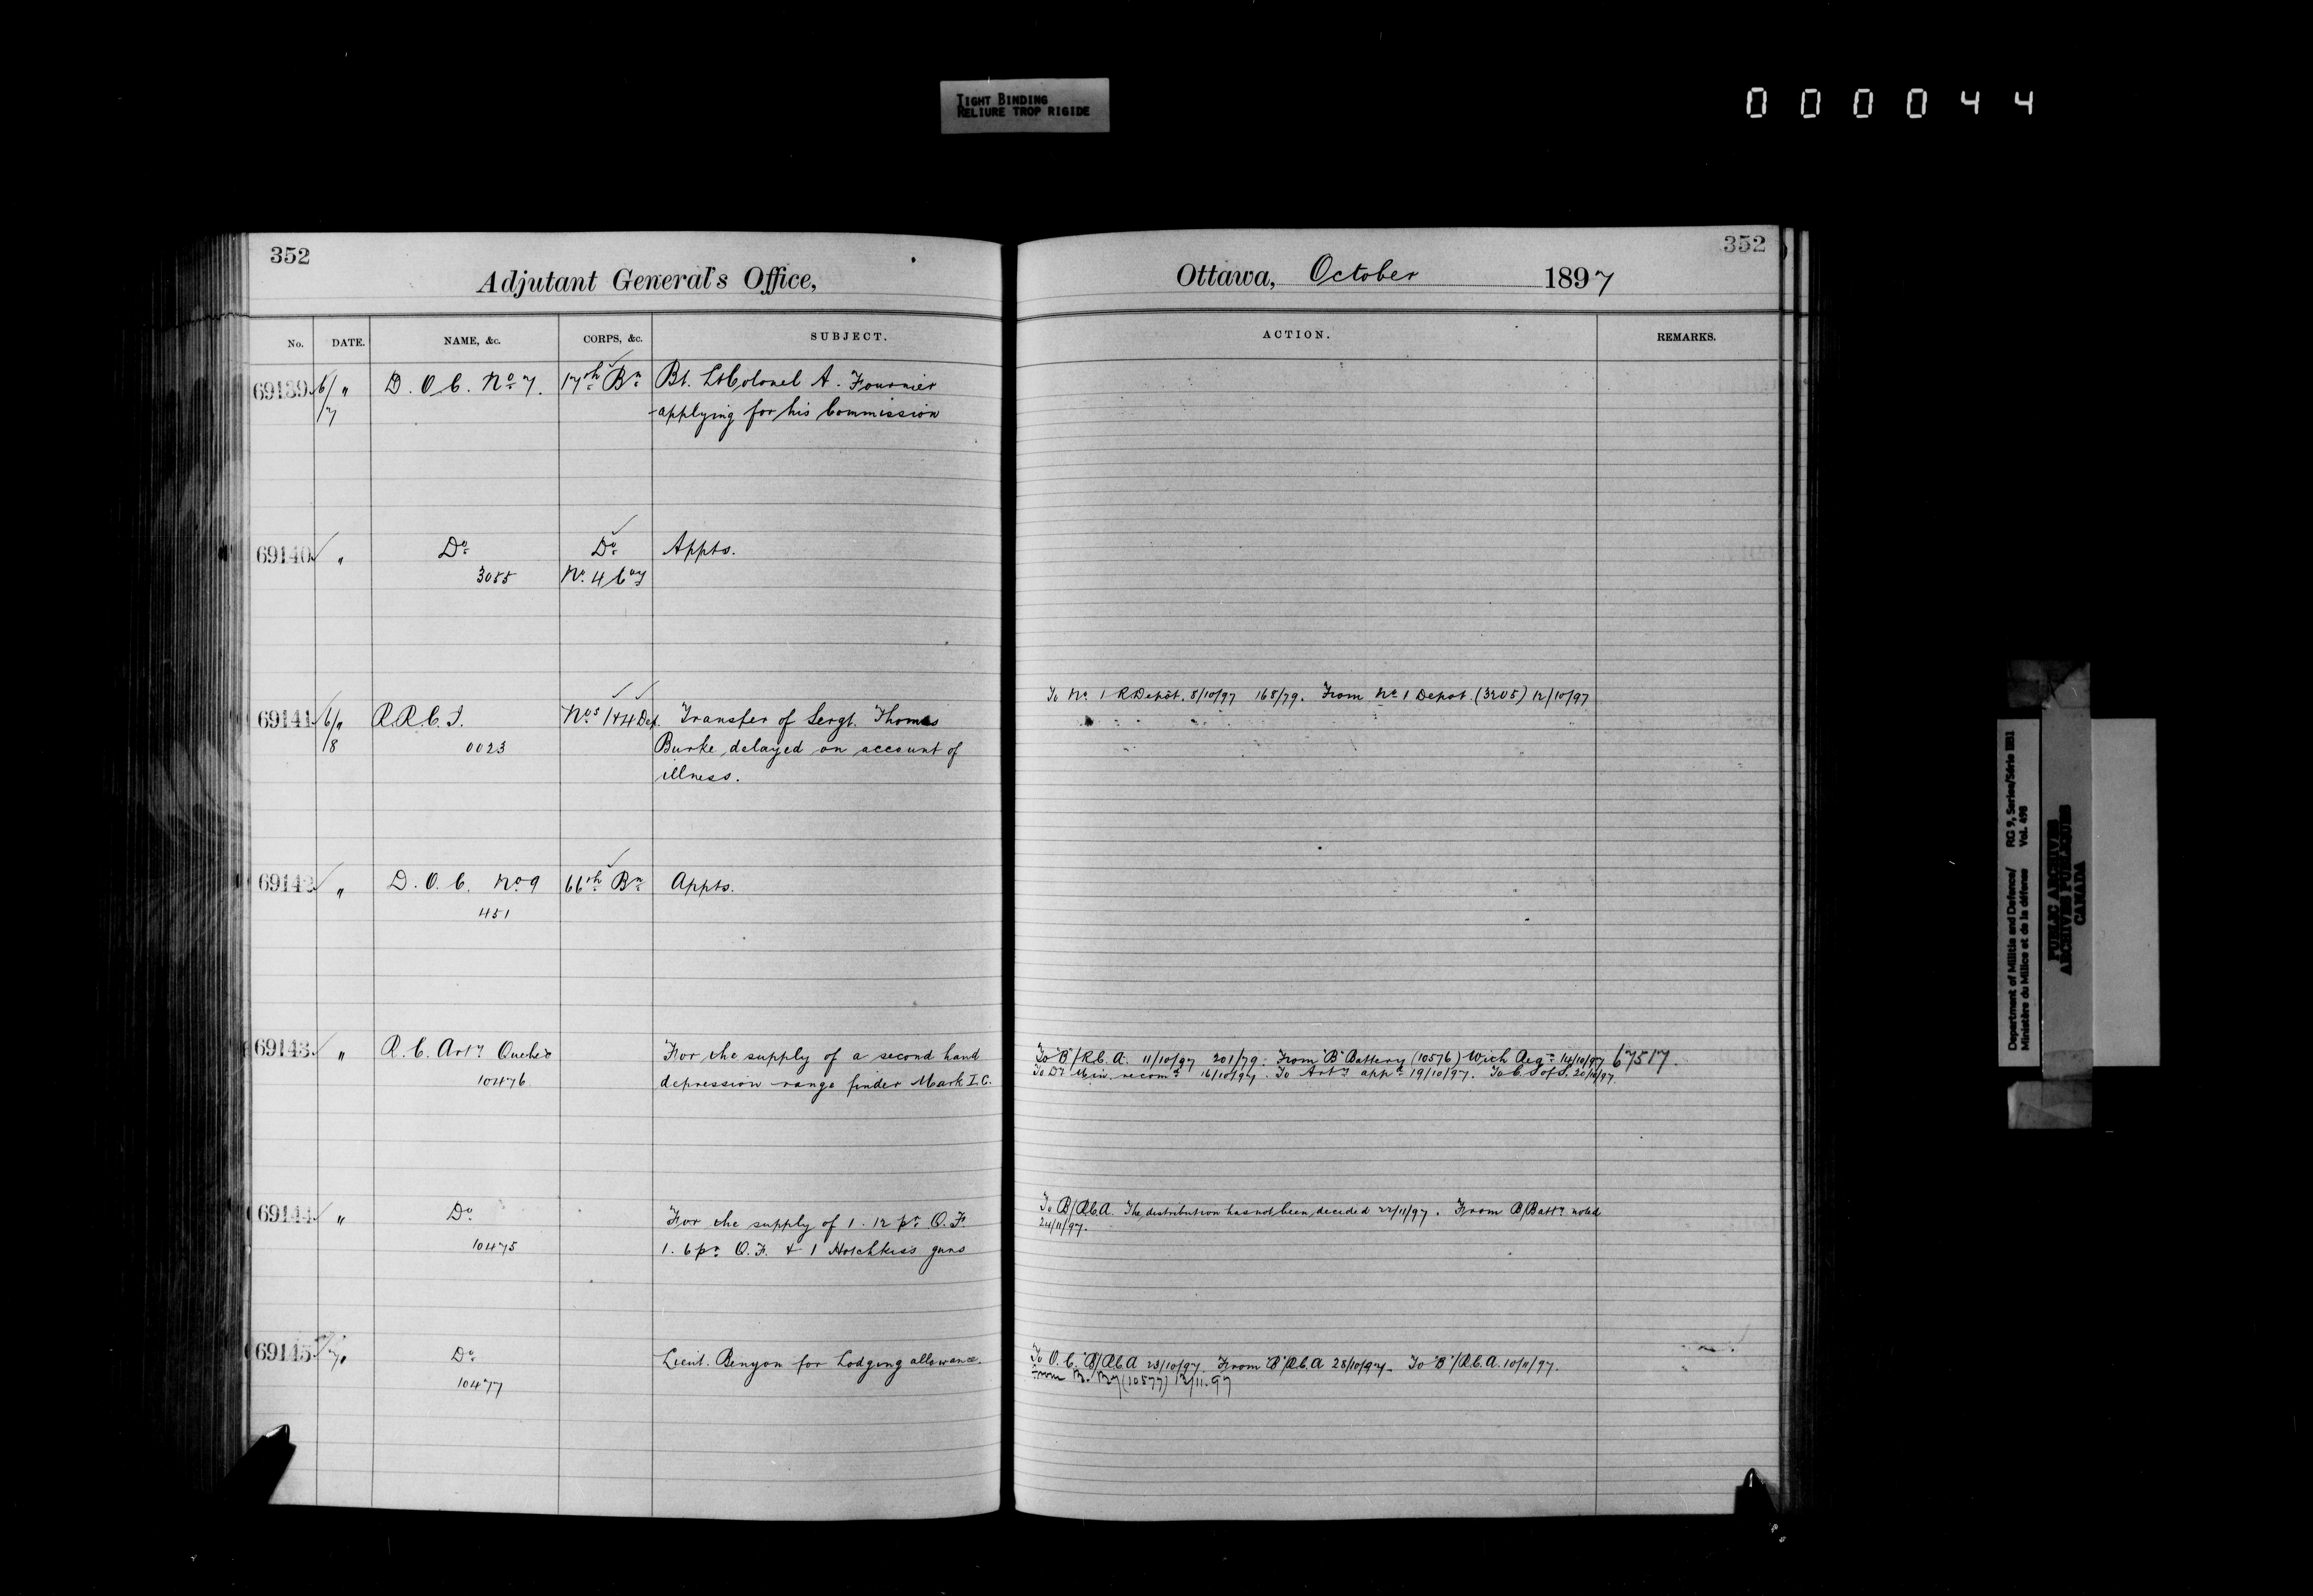 TIGHT BINDING
RELIURE TROP RIGIDE
000044
352
Adjutant General's Office,
No. DATE. NAME, &c. CORPS, &c. SUBJECT.
69139 6/7 " D.O.C. No 7. 17th Bn Bt. Lt Colonel A. Fournier
applying for his Commission
69140 " Do Do Appts.
3055 No. 4 Coy
69141 6/8 " R.R.C.I. Nos 1 & 4 Dep. Transfer of Sergt. Thomas
0023 Burke delayed on account of
illness.
69142 " D.O.C. No 9 66th Bn Appts.
451
69143 " R.C. Arty Quebec For the supply of a second hand
10476 depression range finder Mark I.C.
69144 " Do For the supply of 1. 12 pr Q.F.
10475 1. 6 pr Q.F. & 1 Hotchkiss guns
69145 Do Lieut. Benyon for Lodging allowance.
10477
352
Ottawa, October 1897
ACTION. REMARKS.
To No 1 R Depôt. 8/10/97 168/79. From No 1 Depot (3205) 12/10/97
To "B"/R.C.A. 11/10/97 201/79. From "B" Battery (10576) With Req 14/10/97 67517.
To Dr Min. recomd 16/10/97. To Arty appd 19/10/97. To C. S of S. 20/10/97.
To B/R.C.A. The distribution has not been decided 22/11/97. From B/Batty noted
24/11/97.
To O.C. "B"/R.C.A 23/10/97. From "B"/R.C.A 28/10/97. To "B"/R.C.A. 10/11/97.
From B. By (10577) 12/11.97
Department of Militia and Defence/ RG 9, Series/Série IIB1
Ministère du Milice et de la défense Vol. 498
PUBLIC ARCHIVES
ARCHIVES PUBLIQUES
CANADA